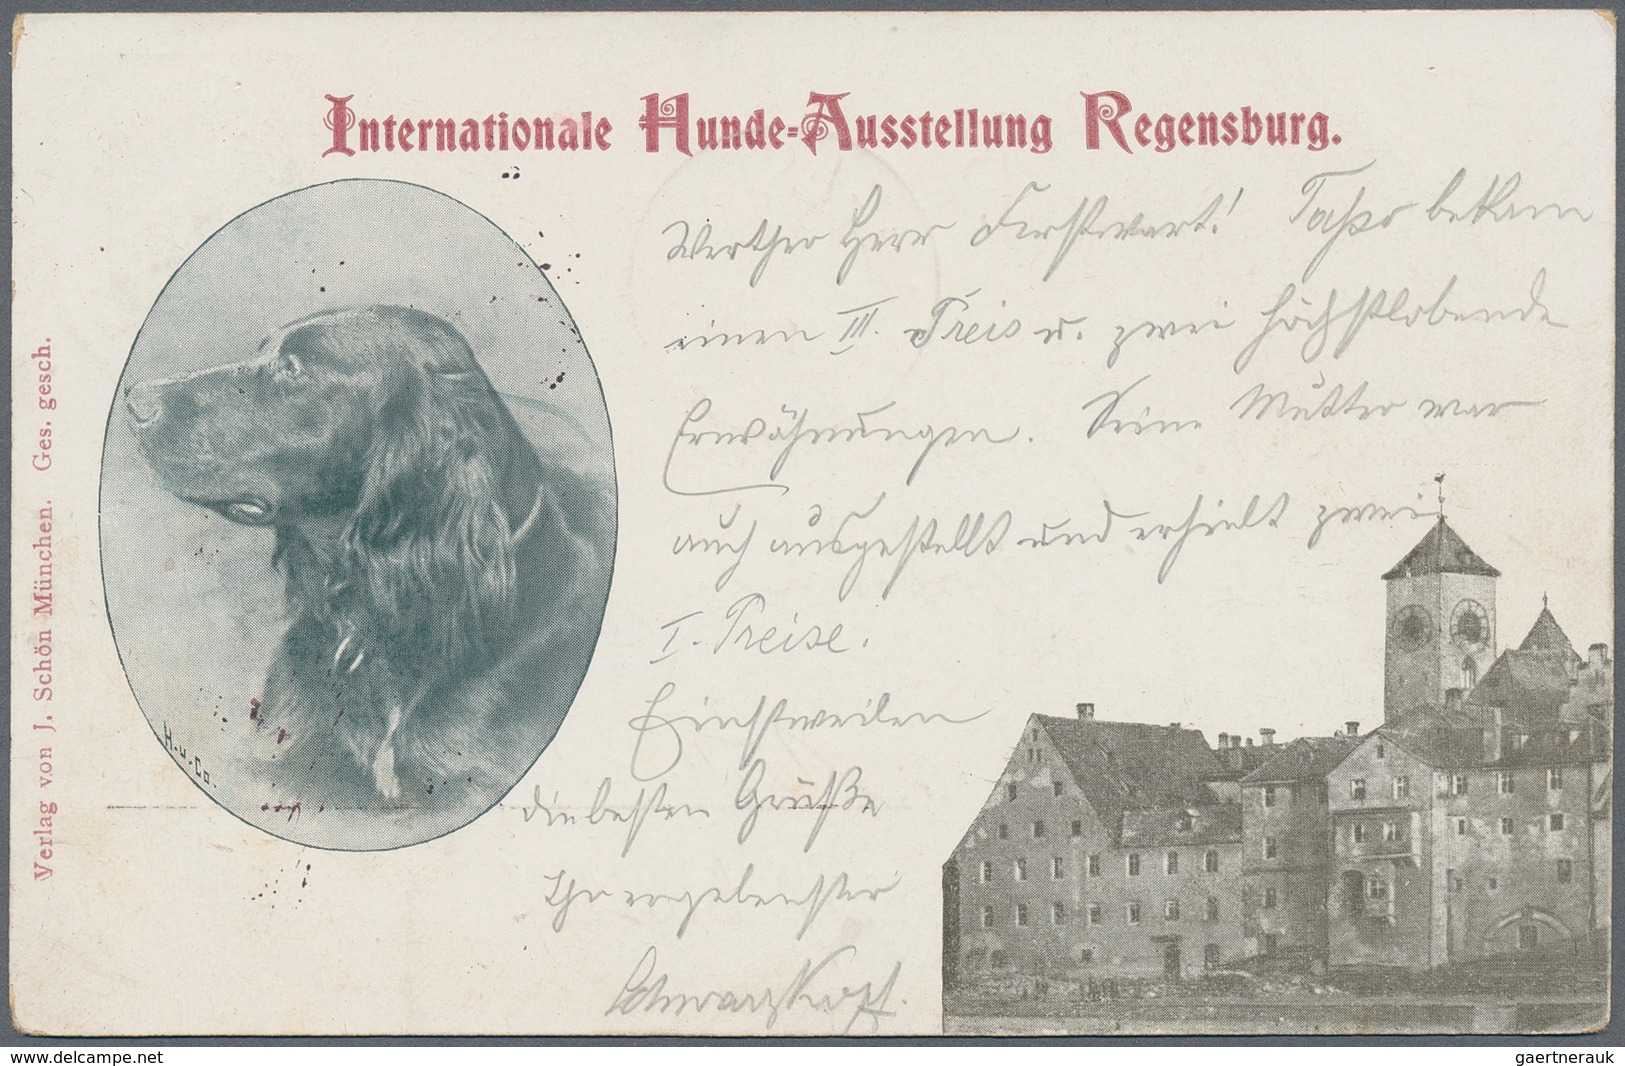 Internationale Hunde-Ausstellung Regensburg.
Werther Herr Forstwart! Tasso bekam
einen III. Preis u. zwei höchstlobende
Erwähnungen. Seine Mutter war
auch ausgestellt und erhielt zwei
I. Preise.
Einstweilen
die besten Grüße
Ihr ergebenster
Schwarzkopf.
H. u. Co.
Verlag von J. Schön München. Ges. gesch.
www.delcampe.net
gaertnerauk